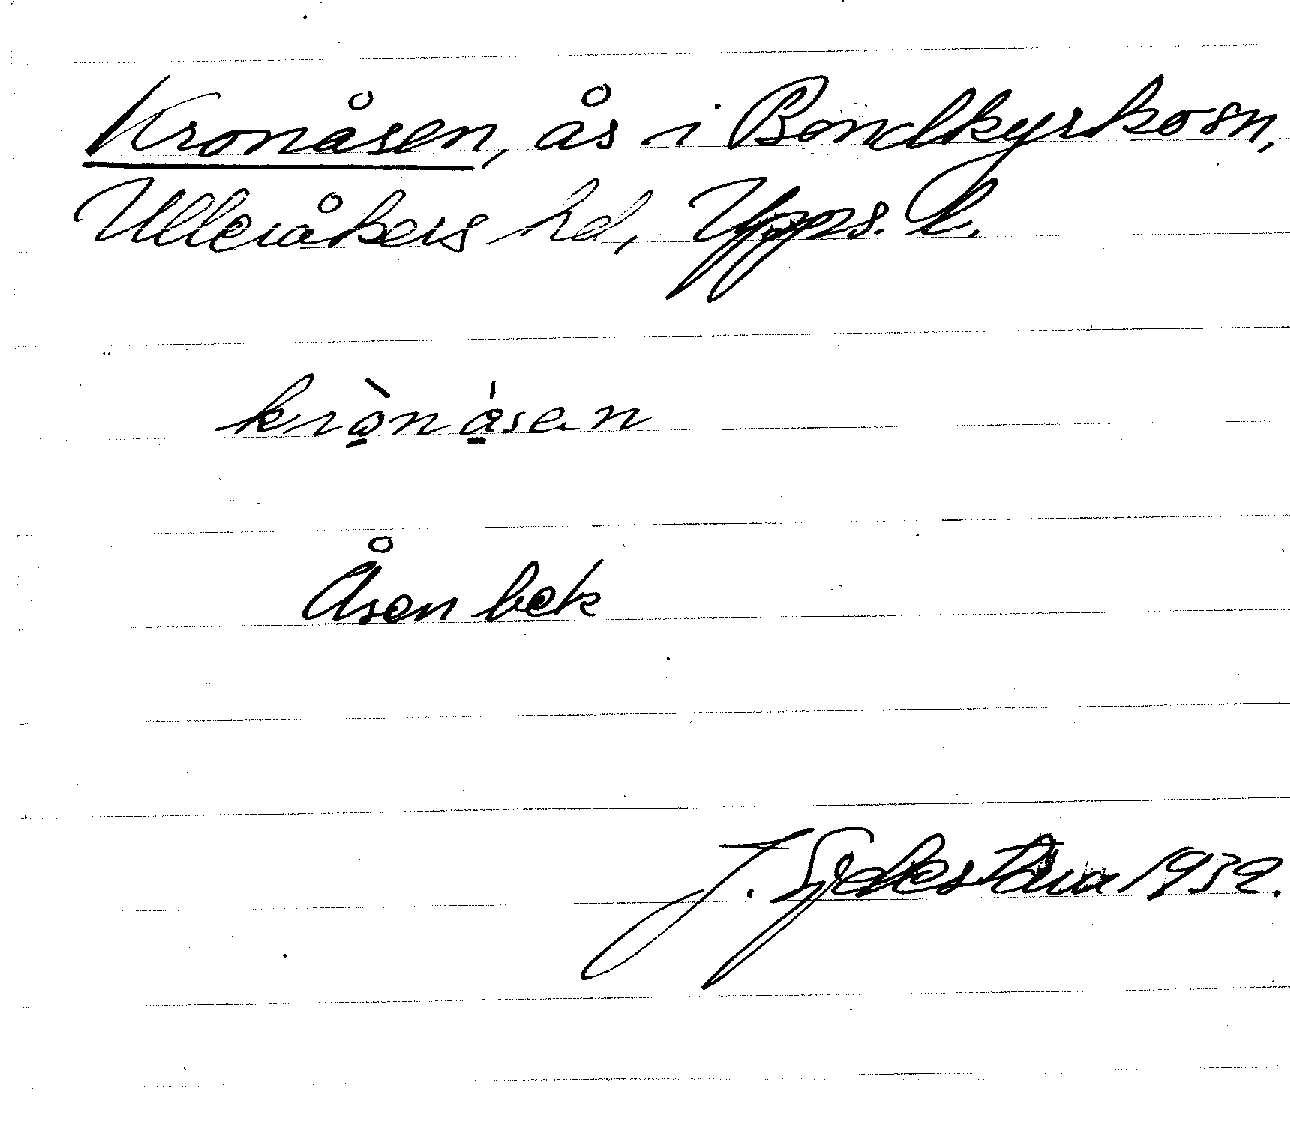 Kronåsen, ås i Bondkyrko sn,
Ulleråkers hd, Upps. l.
krò̱ná̱sen
Åsen bek
J. 1932.